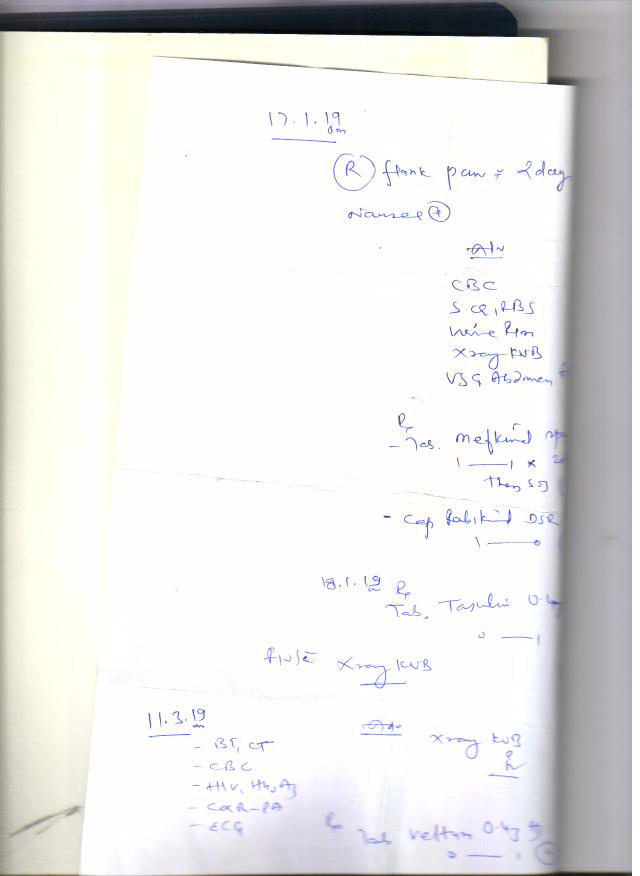 17.1.19
am
(R) flank pain × 2 day
Nausea (+)
Adv
CBC
S. CR, RBS
Urine R/m
Xray KUB
USG Abdomen
Rx
- Tab. Mefkind
1 —— 1 ×
then SOS
- Cap Rabikind DSR
1 —— 0
18.1.19
Rx
Tab. Tasulin 0.4
0 —— 1
Xray KUB
11.3.19
- BT, CT
- CBC
- HIV, HbsAg
- CXR-PA
- ECG
Adv
Xray KUB
Rx
Tab 0.4
0 —— 1